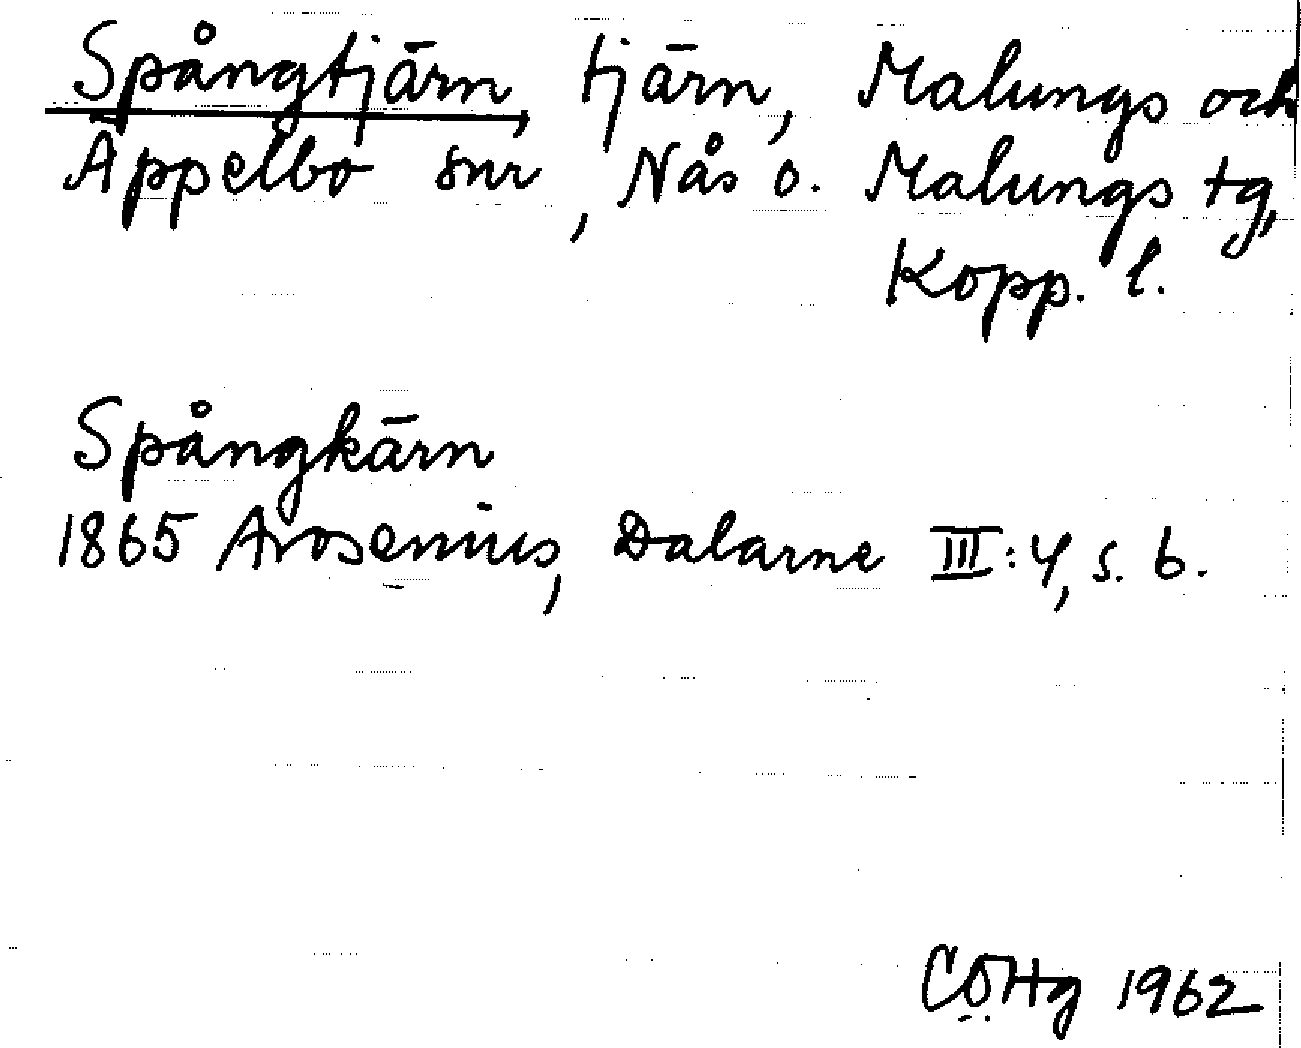 Spångtjärn, tjärn, Malungs och
Äppelbo snr, Nås o. Malungs tg,
Kopp. l.
Spångkärn
1865 Arosenius, Dalarne III:4, s. 6.
CÖHg 1962